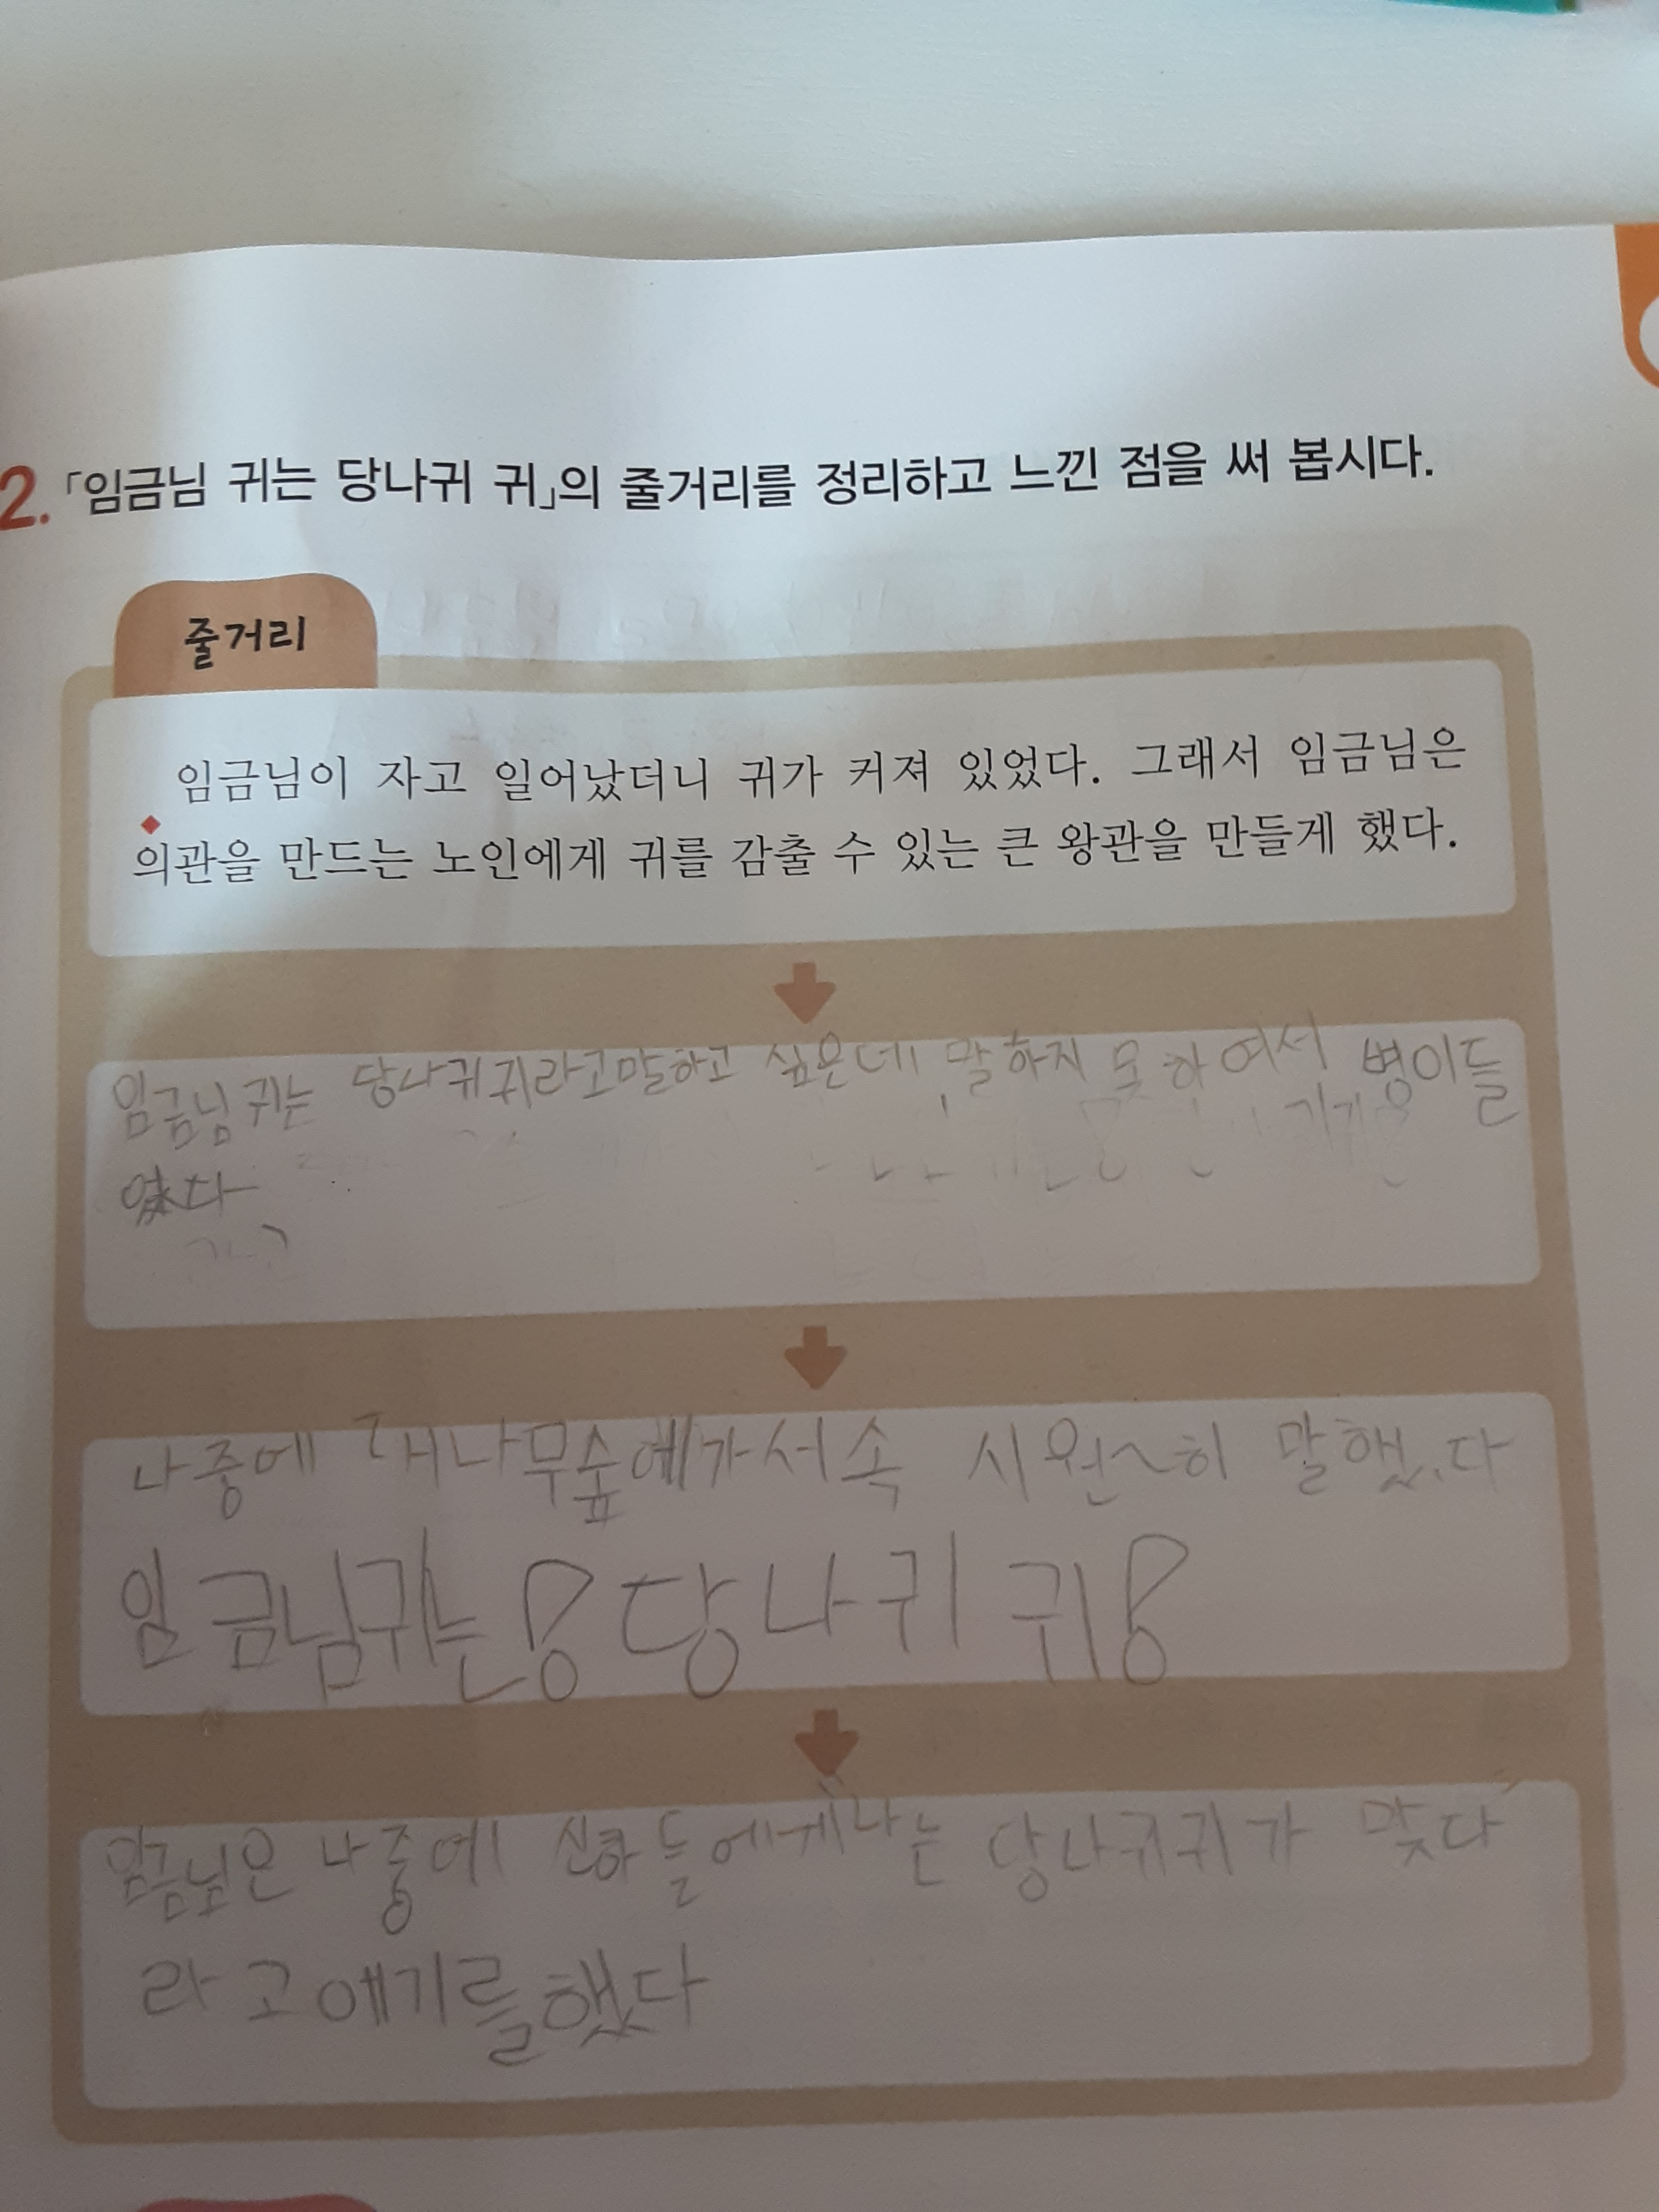 2. 「임금님 귀는 당나귀 귀」의 줄거리를 정리하고 느낀 점을 써 봅시다.
줄거리
임금님이 자고 일어났더니 귀가 커져 있었다. 그래서 임금님은
의관을 만드는 노인에게 귀를 감출 수 있는 큰 왕관을 만들게 했다.
임금님귀는 당나귀귀라고말하고 싶은데 말하지 못하여서 병이들
었다
나중에 대나무숲에가서속 시원~히 말했다
임금님귀는! 당나귀 귀!
임금님은 나중에 신하들에게나는 당나귀귀가 맞다
라고얘기를했다